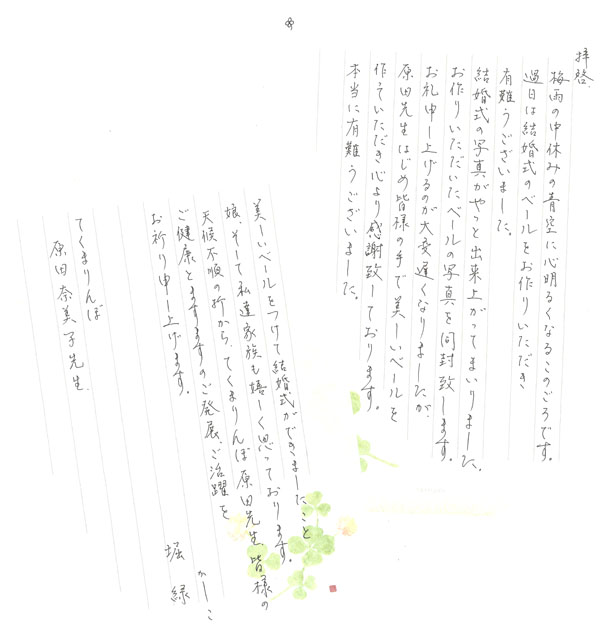 拝啓、
梅雨の中休みの青空に心明るくなるこのごろです。
過日は結婚式のベールをお作りいただき
有難うございました。
結婚式の写真がやっと出来上がってまいりました。
お作りいただいたベールの写真を同封致します。
お礼申し上げるのが大変遅くなりましたが、
原田先生はじめ皆様の手で美しいベールを
作っていただき心より感謝致しております。
本当に有難うございました。
美しいベールをつけて結婚式ができましたこと
娘、そして私達家族も嬉しく思っております。
天候不順の折から、てくまりんぼ原田先生、皆様の
ご健康とますますのご発展、ご活躍を
お祈り申し上げます。
かしこ
堀 緑
てくまりんぼ
原田奈美子先生、